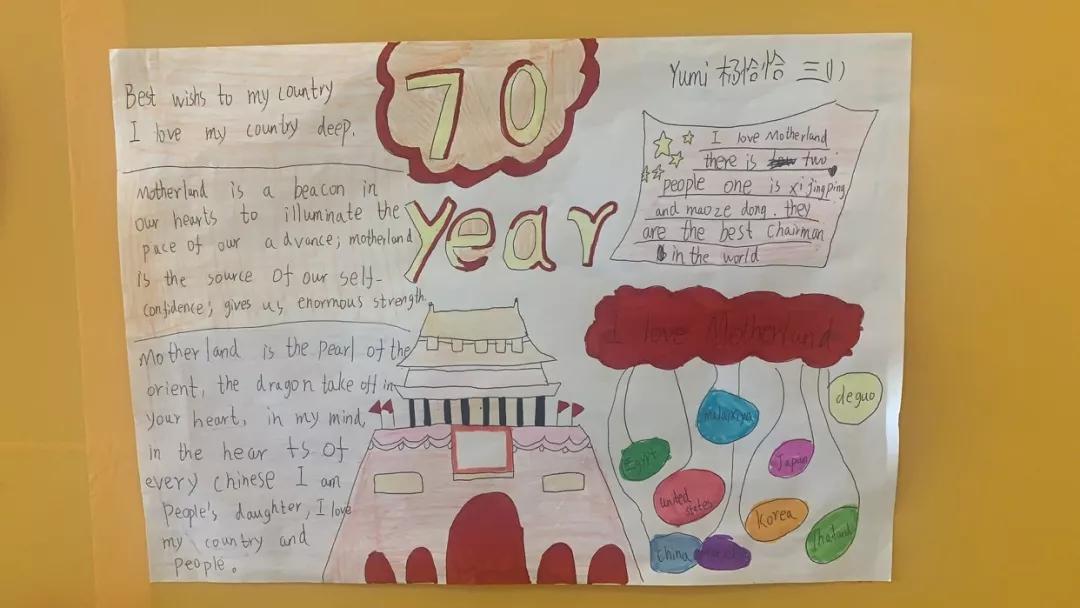 Best wishs to my country
I love my country deep.
Motherland is a beacon in
our hearts to illuminate the
pace of our advance; motherland
is the source of our self-
confidence; gives us enormous strength.
Motherland is the pearl of the
orient, the dragon take off in
your heart, in my mind,
in the hearts of
every chinese I am
people's daughter, I love
my country and
people.
70
year
Yumi 杨恰恰 三(1)
I love Motherland
there is two
people one is xi jingping
and maoze dong. they
are the best Chairman
in the world
I love Motherland
deguo
malaixiya
Egypt
Japan
united
states
Korea
Thailand
China